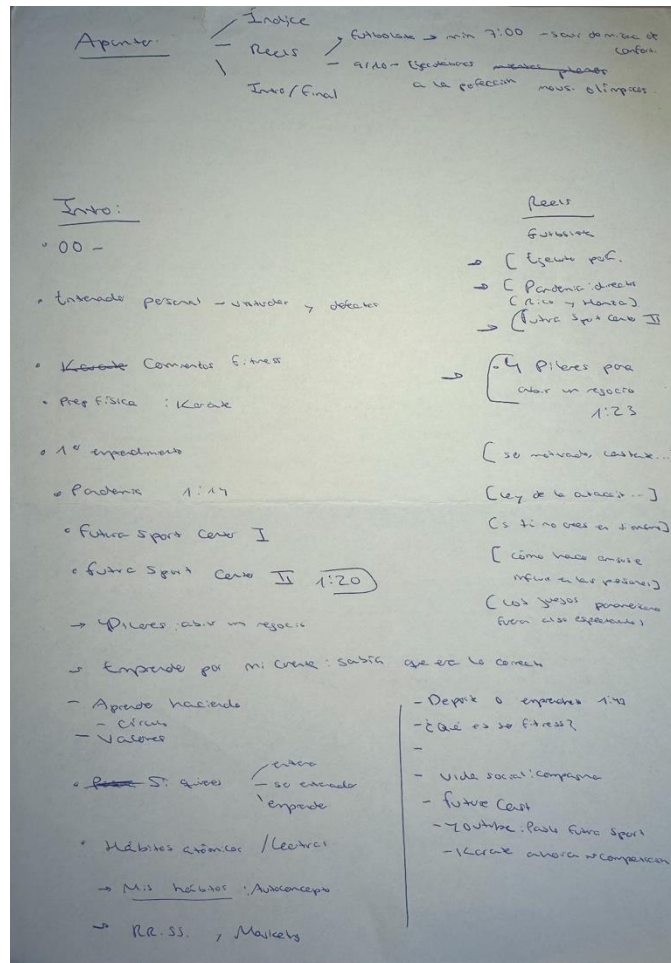 Apuntes:
Índice
Reels
futbolista → min 7:00 - salir de mi zona de confort.
Intro/Final
a la perfección movs. olímpicos.
Intro:
• 00 -
• Entrenador personal - virtudes y defectos
• Karate Comienzos fitness
• Prep física : Karate
• 1º emprendimiento
• Pandemia 1:14
• Futura Sport Center I
• Futura Sport Center II 1:20
→ 4 Pilares: abrir un negocio
→ Emprende por mi cuenta: sabía que era lo correcto
- Aprende haciendo
- Círculo
- Valores
• Si quieres
- ser entrenador
emprende
• Hábitos atómicos / Lecturas
→ Mis hábitos : Autoconcepto
→ RR.SS. , Marketing
Reels
Futbolista
→ [ Ejecuta perf.
→ [ Pandemia: directo
→ [ Futura Sport Center II
→ [ • 4 Pilares para
abrir un negocio
1:23
[ ser motivado, constante...
[ Ley de la atracción... ]
[ si tú no crees en ti mismo ]
[ cómo haces
influir en las personas ]
[ Los juegos panamericanos
fueron algo espectacular ]
- Deporte o emprender
- ¿Qué es ser fitness?
-
- Vida social: compagina
- Futura Cast
- Youtube: Futura Sport
- Karate ahora